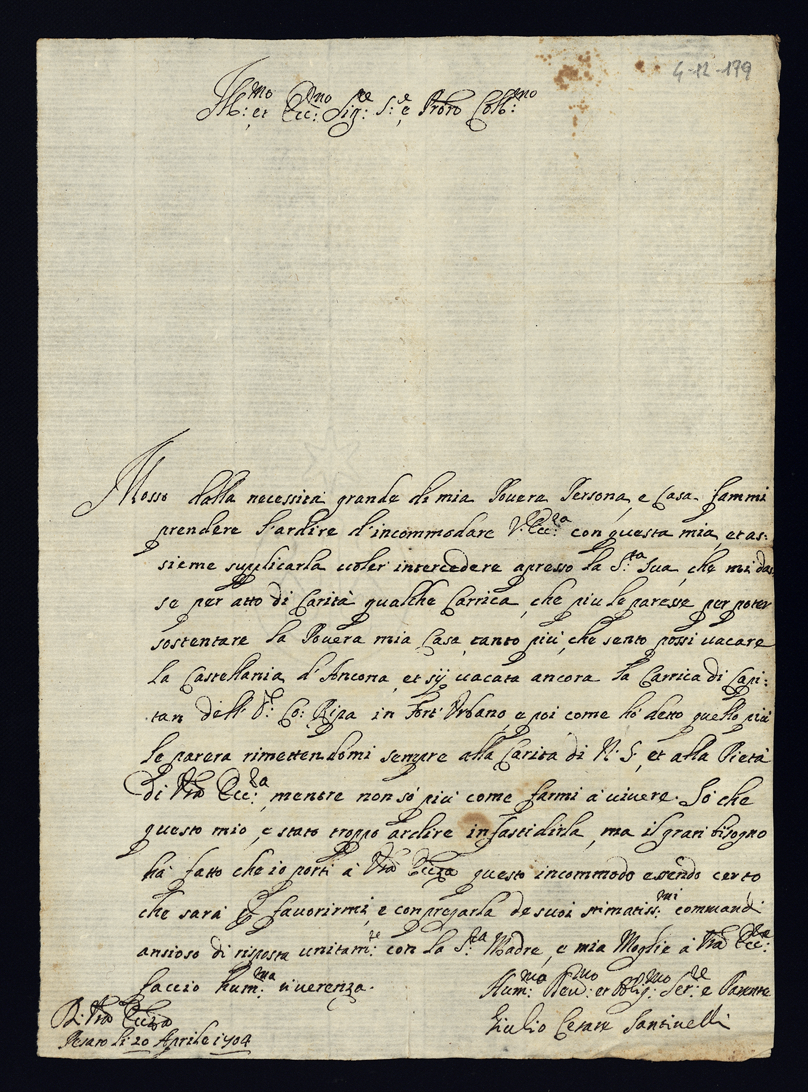 4-12-199
Ill:mo et Ecc:mo Sig:re S:e e Prõn Coll:mo
Mosso dalla necessità grande di mia Povera Persona, e Casa fammi
prendere l'ardire d'incommodare V: Ecc:za con questa mia, et as:
sieme supplicarla voler intercedere apresso la S:ta Sua, che mi das
se per atto di Carità qualche Carrica, che più le paresse per poter
sostentare la Povera mia Casa, tanto più, che sento possi vacare
la Castellania d'Ancona, et sij vacata ancora la Carrica di Capi:
tan dell' Co: Ripa in Fort' Urbano, e poi come hò detto quello più
le parerà rimettendomi sempre alla Carità di N: S, et alla Pietà
di Vra Ecc:za, mentre non sò più come farmi à vivere. Sò che
questo mio, e stato troppo ardire infastidirla, ma il gran bisogno
hà fatto che io porti à Vra Eccza questo incommodo essendo certo
che sarà favorirmi, e con pregarla de suoi stimatiss:mi commandi
ansioso di risposta unitam:te con la S:ra Madre, e mia Moglie à Vra Ecc:za
faccio hum:ma riverenza.
Hum:mo Dev:mo et Oblig:mo Ser:re e Parente
Di Vra Eccza
Giulio Cesare Santinelli
Pesaro li 20 Aprile 1704